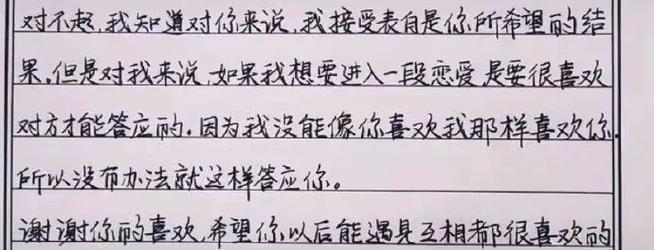 对不起,我知道对你来说,我接受表白是你所希望的结
果,但是对我来说,如果我想要进入一段恋爱,是要很喜欢
对方才能答应的。因为我没能像你喜欢我那样喜欢你,
所以没有办法就这样答应你。
谢谢你的喜欢,希望你以后能遇见互相都很喜欢的